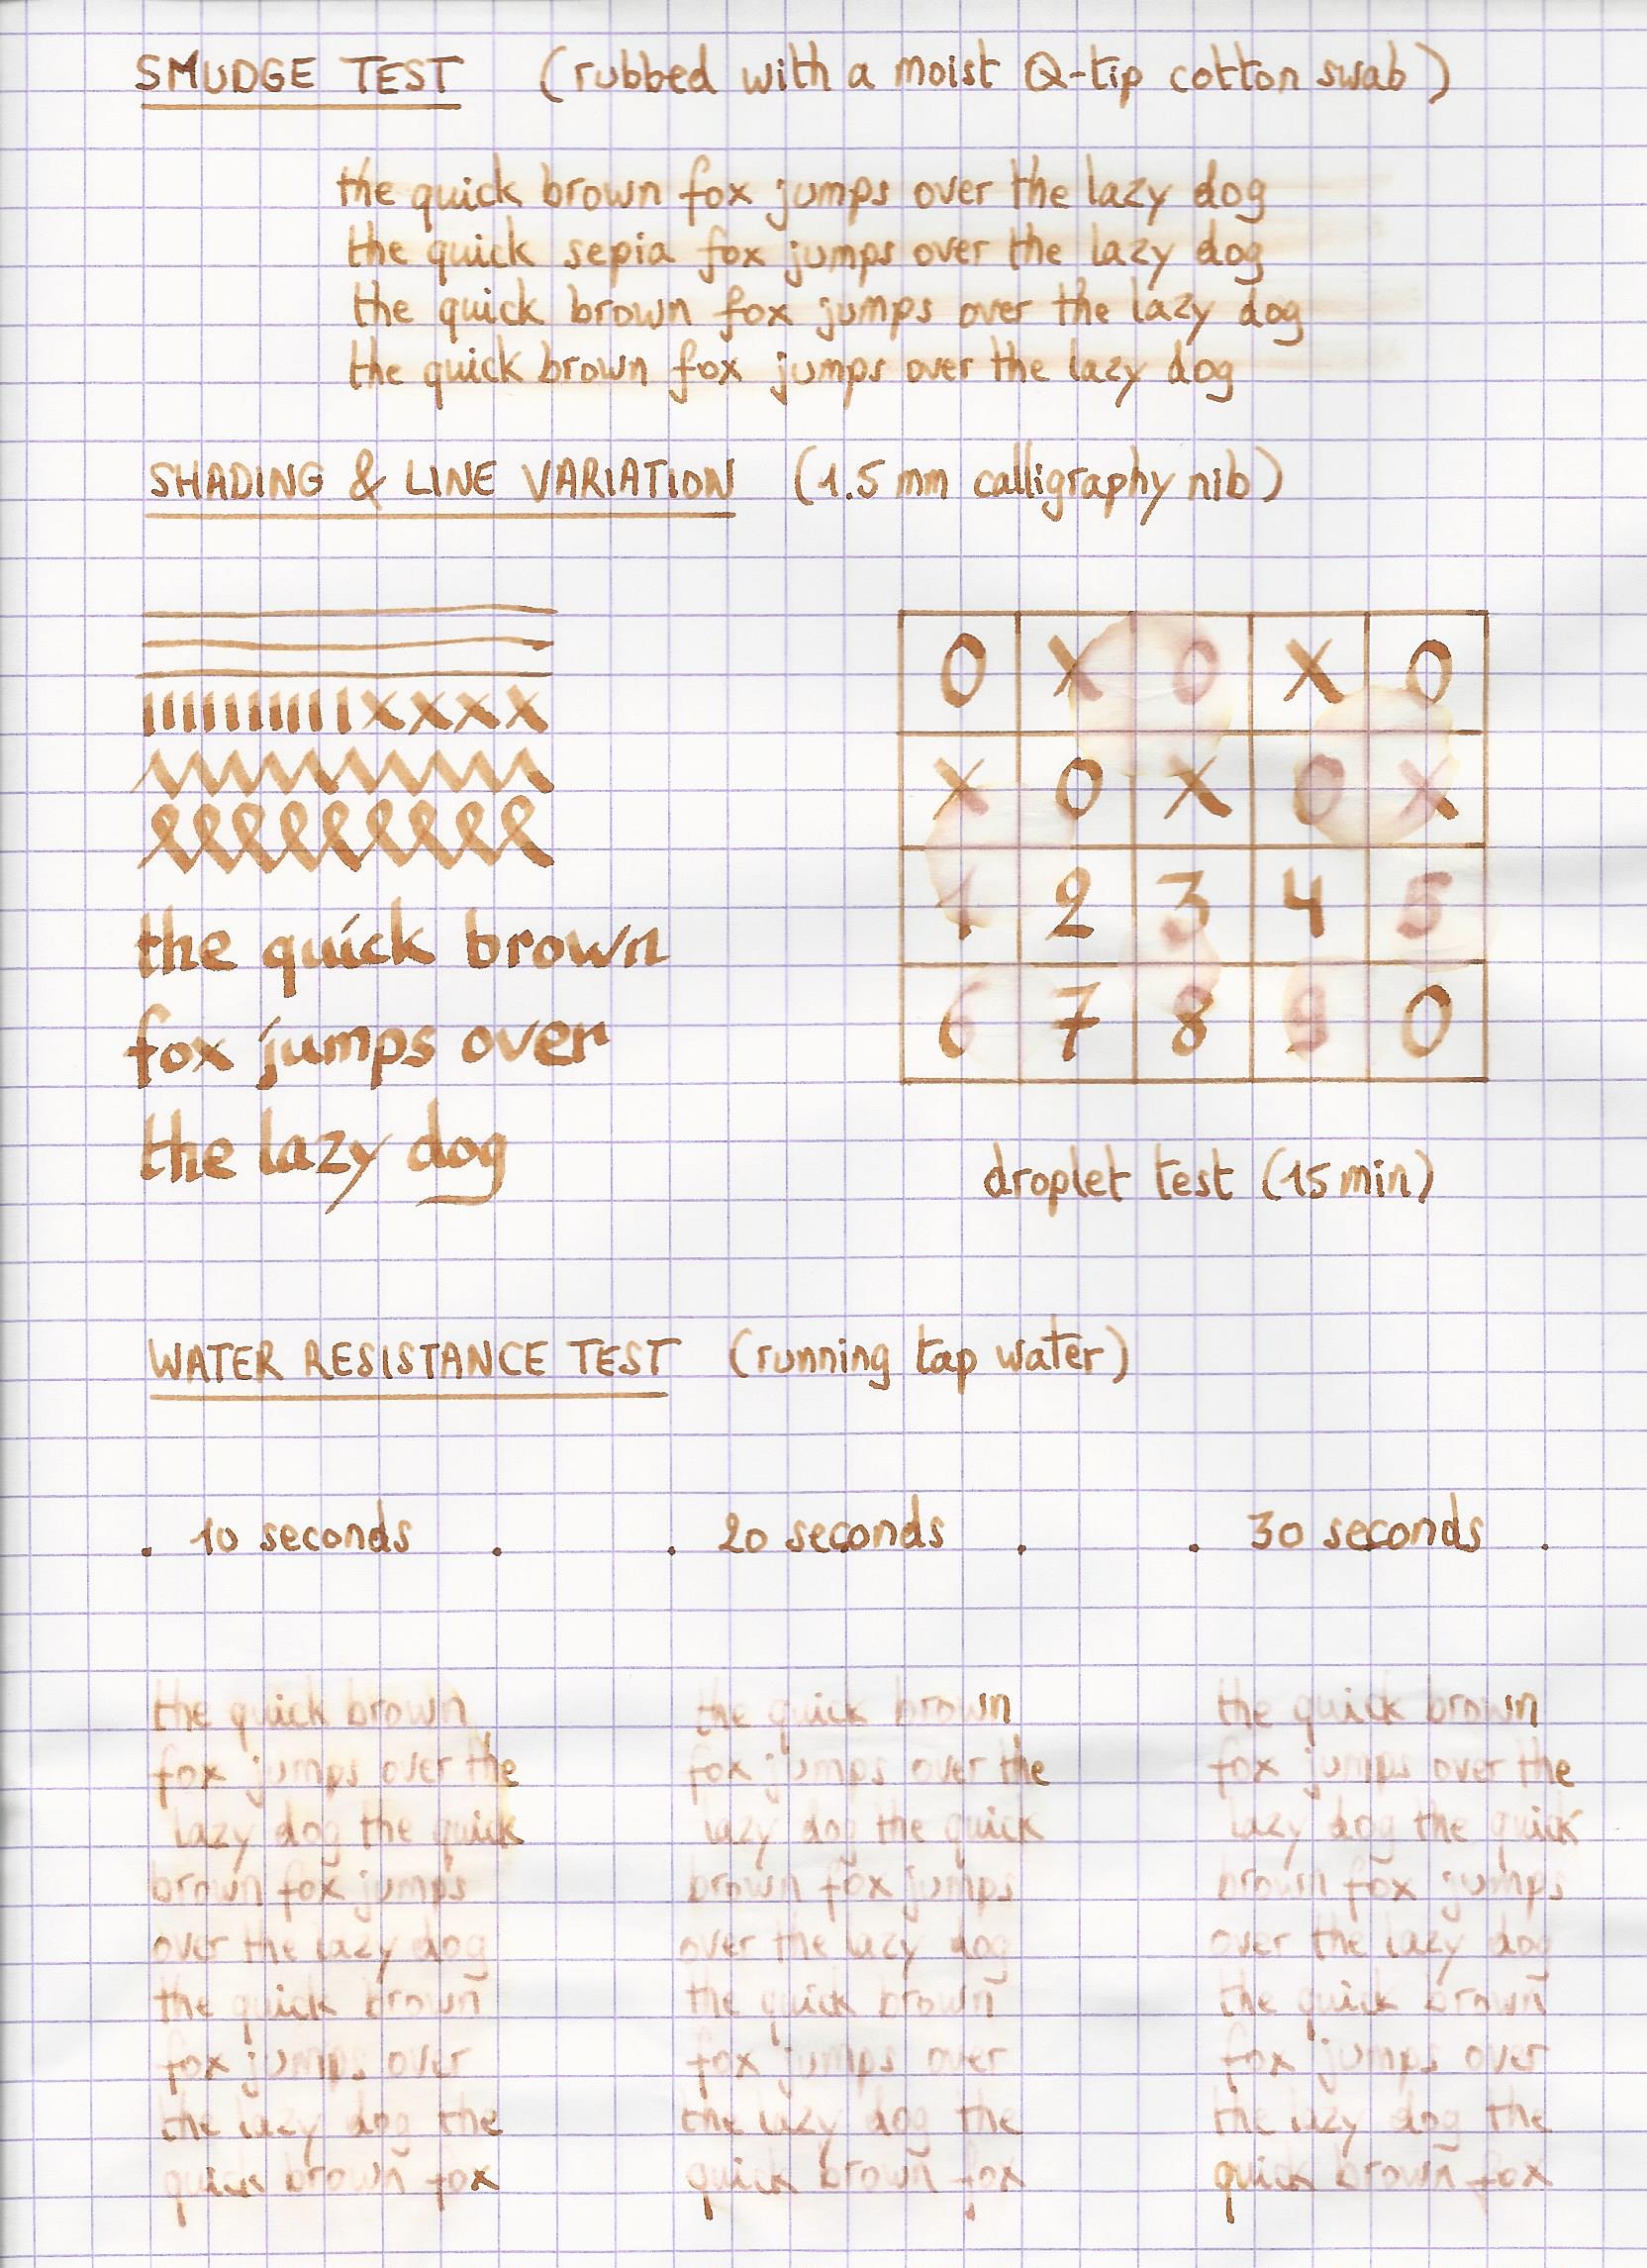 SMUDGE TEST (rubbed with a moist Q-tip cotton swab)
the quick brown fox jumps over the lazy dog
the quick sepia fox jumps over the lazy dog
the quick brown fox jumps over the lazy dog
the quick brown fox jumps over the lazy dog
SHADING & LINE VARIATION (1.5 mm calligraphy nib)
IIIIIIIIIIIXXXX
the quick brown
fox jumps over
the lazy dog
O X O X O
X O X O X
1 2 3 4 5
6 7 8 9 0
droplet test (15 min)
WATER RESISTANCE TEST (running tap water)
. 10 seconds . . 20 seconds . . 30 seconds .
the quick brown
fox jumps over the
lazy dog the quick
brown fox jumps
over the lazy dog
the quick brown
fox jumps over
the lazy dog the
quick brown fox
the quick brown
fox jumps over the
lazy dog the quick
brown fox jumps
over the lazy dog
the quick brown
fox jumps over
the lazy dog the
quick brown fox
the quick brown
fox jumps over the
lazy dog the quick
brown fox jumps
over the lazy dog
the quick brown
fox jumps over
the lazy dog the
quick brown fox